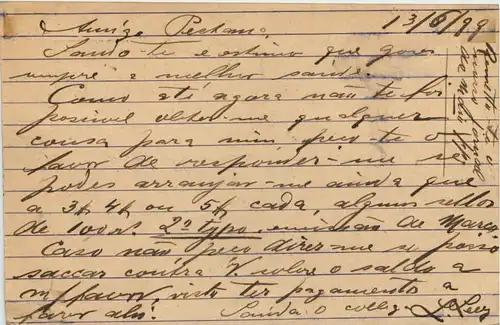 Amigo Pestana, 13/6/99
Saudo-te e estimo que goses
sempre a melhor saúde.
Como até agora não te foi
posivel obter-me qualquer
cousa para mim peço-te o
favor de responder-me se
podes arranjar-me ainda que
a 3$ 4$ ou 5$ cada, alguns sellos
de 100 rs 2º typo, emissão de Março.
Caso não peço dizer-me se posso
saccar contra V. sobre o saldo a
m/ favor, visto ter pagamento a
fazer ahi. Saúda o colleg.